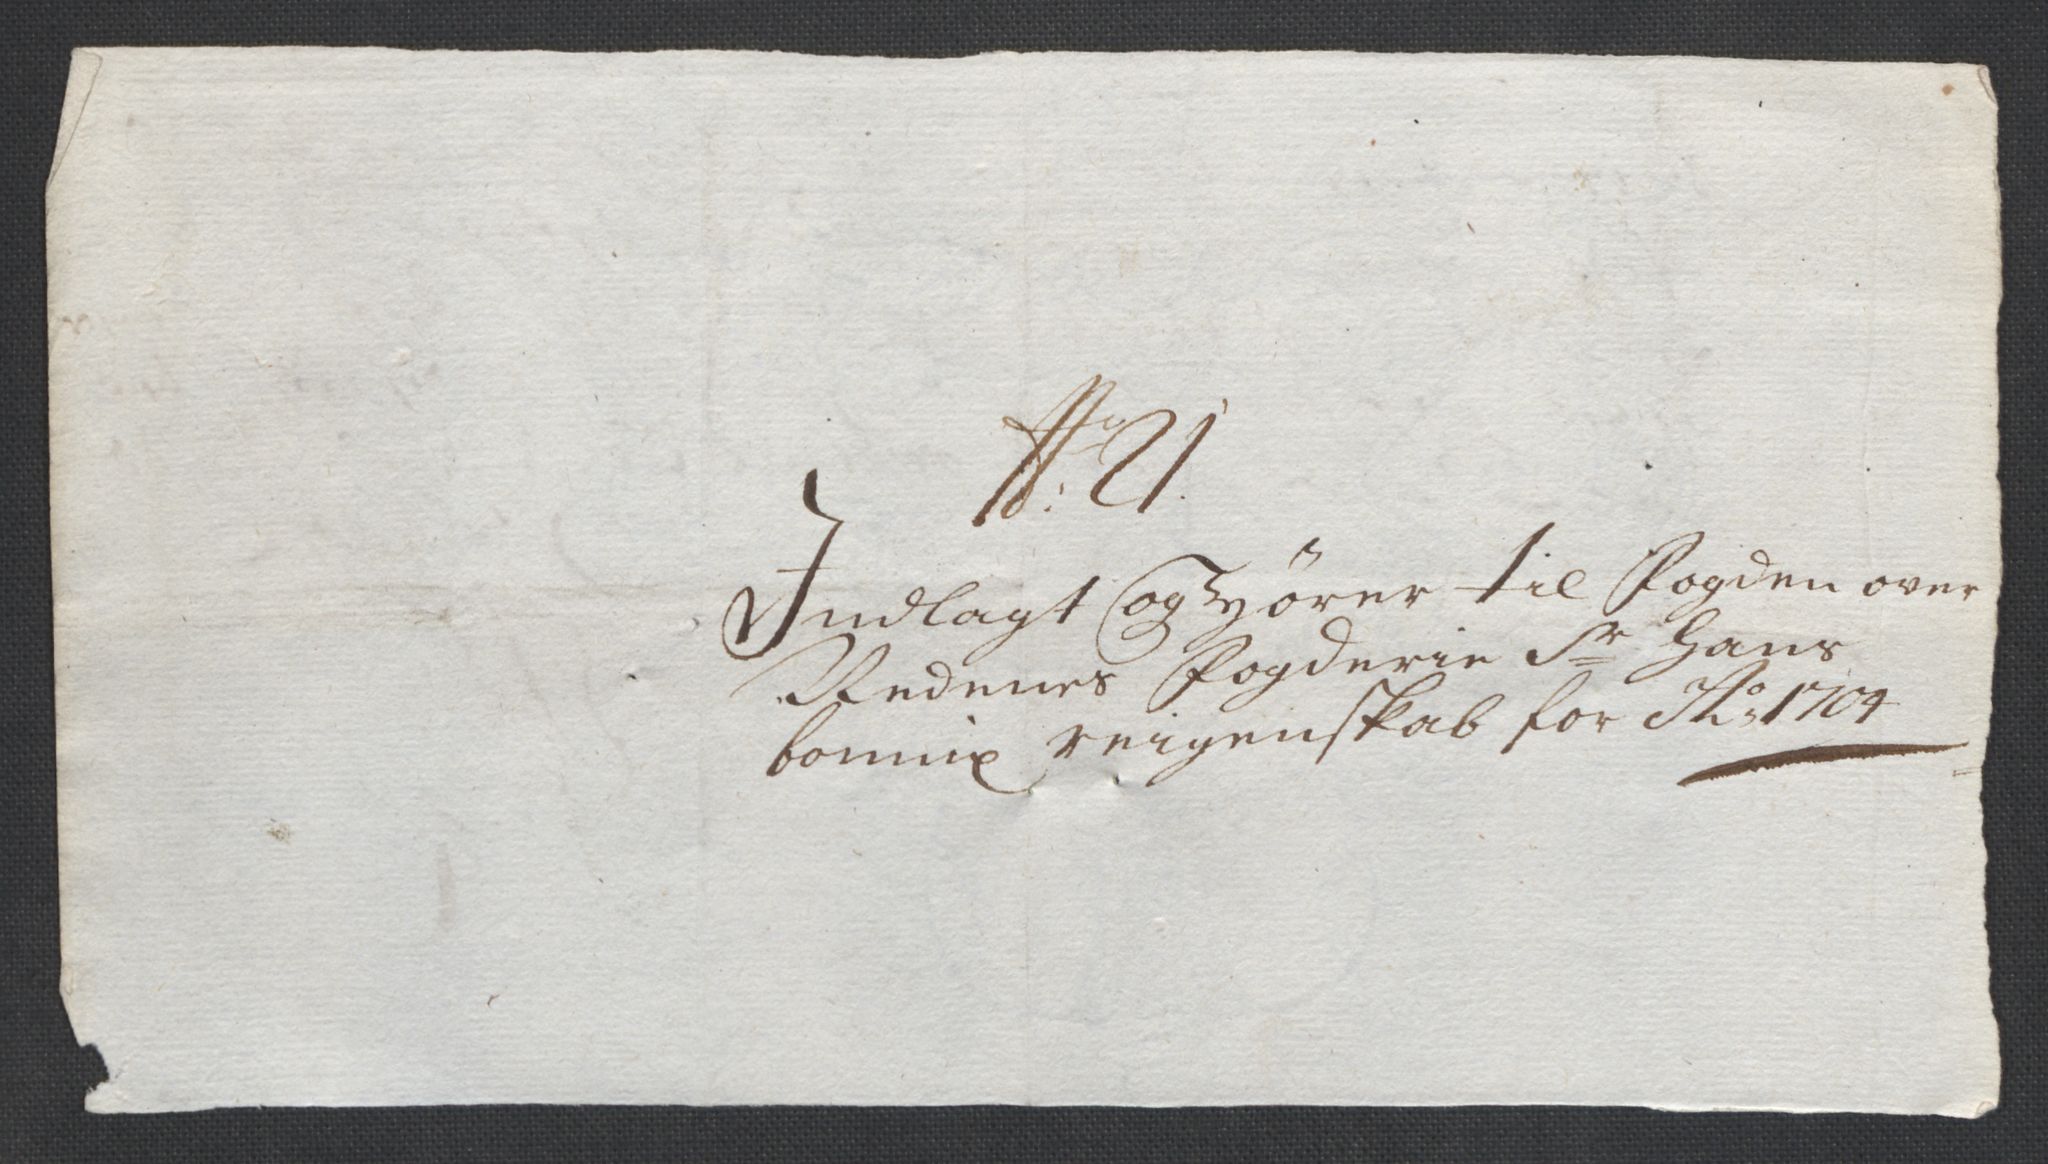 No: 21.
Indlagt og hörer til Fogden over
Nedenes Fogderie Sr Hans
bonnix reigenskab for Ao: 1704